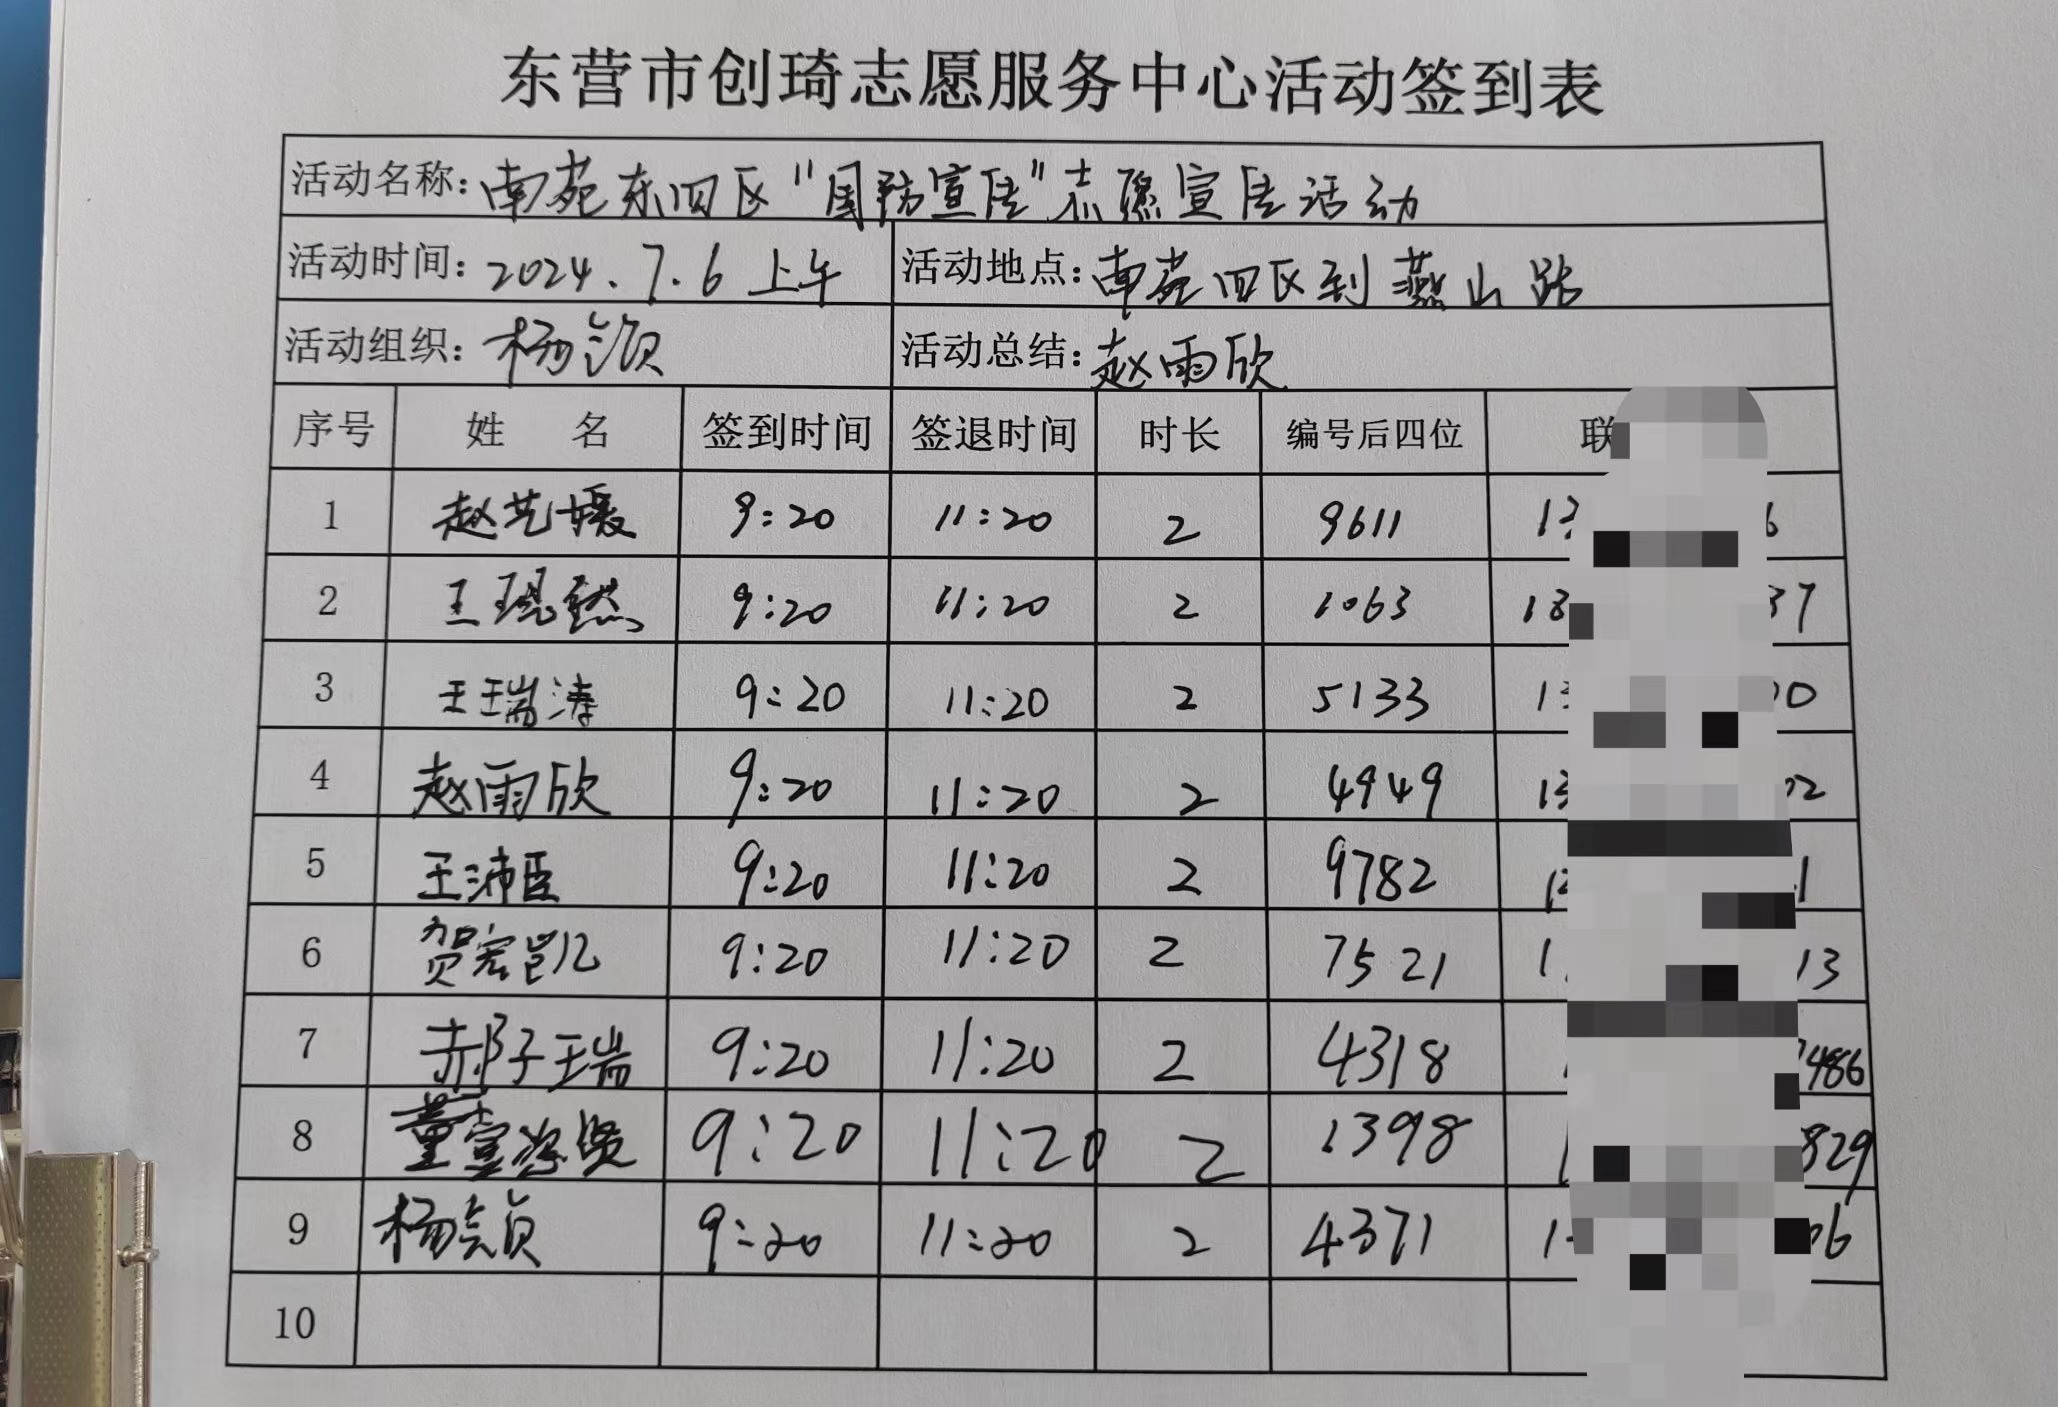 东营市创琦志愿服务中心活动签到表
活动名称：南苑东四区“国防宣传”志愿宣传活动
活动时间：2024.7.6 上午 活动地点：南苑四区到燕山路
活动组织：杨颔 活动总结：赵雨欣
序号 姓 名 签到时间 签退时间 时长 编号后四位 联
1 赵艺媛 9:20 11:20 2 9611
2 王琨 9:20 11:20 2 1063 18 37
3 王瑞涛 9:20 11:20 2 5133 13 00
4 赵雨欣 9:20 11:20 2 4949 13 02
5 王沛臣 9:20 11:20 2 9782 1
6 贺宏凯 9:20 11:20 2 7521 1 13
7 郝子瑞 9:20 11:20 2 4318 7486
8 董 贤 9:20 11:20 2 1398 829
9 杨 9:20 11:20 2 4371 1 06
10